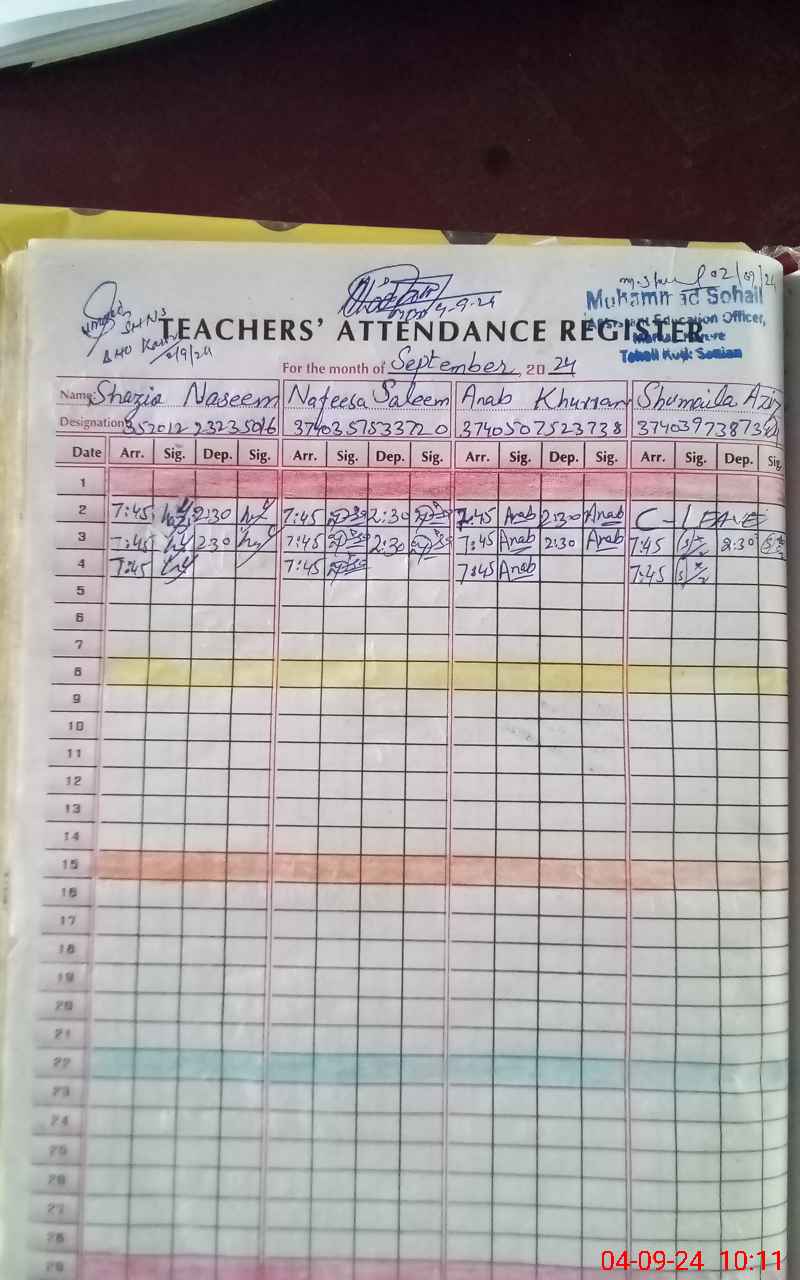 02/09/24
Muhammad Sohail
Assistant Education Officer,
4-9-24
SHNS
TEACHERS' ATTENDANCE REGISTER
For the month of September, 2024
Name: Shazia Naseem Nafeesa Saleem Anab Khurram Shumaila Aziz
Designation
Date Arr. Sig. Dep. Sig. Arr. Sig. Dep. Sig. Arr. Sig. Dep. Sig. Arr. Sig. Dep. Sig.
1
2 7:45 2:30 7:45 2:30 7:45 Anab 2:30 Anab C-LEAVE
3 7:45 2:30 7:45 2:30 7:45 Anab 2:30 Anab 7:45 2:30
4 7:45 7:45 7:45 Anab 7:45
5
6
7
8
9
10
11
12
13
14
15
16
17
18
19
20
21
22
23
24
25
26
27
28
29
04-09-24 10:11